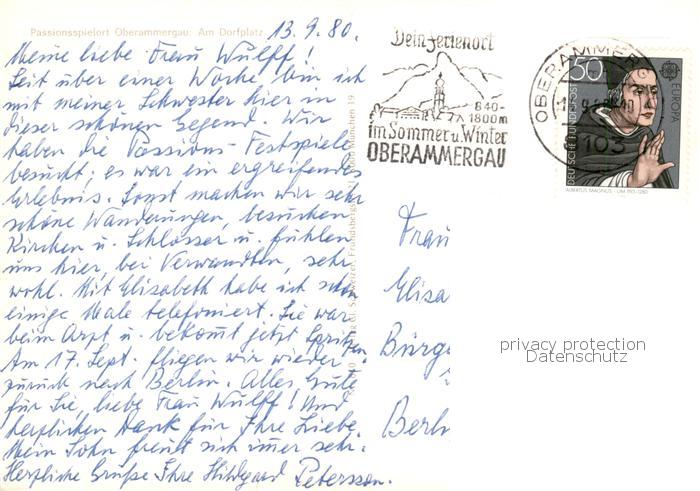 Passionsspielort Oberammergau: Am Dorfplatz
13.9.80.
Meine liebe Frau Wulff!
Seit über einer Woche bin ich
mit meiner Schwester hier in
dieser schönen Gegend. Wir
haben die Passions-Festspiele
besucht; es war ein ergreifendes
Erlebnis. Sonst machen wir sehr
schöne Wanderungen, besuchen
Kirchen u. Schlösser u. fühlen
uns hier, bei Verwandten, sehr
wohl. Mit Elisabeth habe ich schon
einige Male telefoniert. Sie war
beim Arzt u. bekommt jetzt Spritzen.
Am 17. Sept. fliegen wir wieder
zurück nach Berlin. Alles Gute
für Sie, liebe Frau Wulff! Und
herzlichen Dank für Ihre Liebe.
Mein Sohn freut sich imer sehr.
Herzliche Grüße Ihre Hildegard Petersson.
Dein Ferienort
840-
1800m
im Sommer u. Winter
OBERAMMERGAU
OBERAMMERG
103
50
EUROPA
DEUTSCHE BUNDESPOST
ALBERTUS MAGNUS · UM 1193-1280
Frau
Elisa
Bürge
Berln
privacy protection
Datenschutz